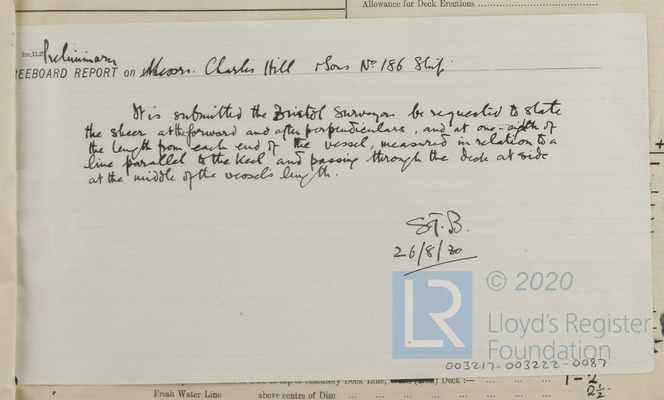 Allowance for Deck Erections
Preliminary
REEBOARD REPORT on Messrs. Charles Hill & Sons No 186 Ship.
It is submitted the Bristol Surveyors be requested to state
the sheer at the forward and after perpendiculars, and at one-eighth of
the length from each end of the vessel, measured in relation to a
line parallel to the keel and passing through the deck at side
at the middle of the vessel's length.
26/8/20
© 2020
LR
Lloyd's Register
Foundation
003217-003222-0087
Deck :—
Fresh Water Line above centre of Disc